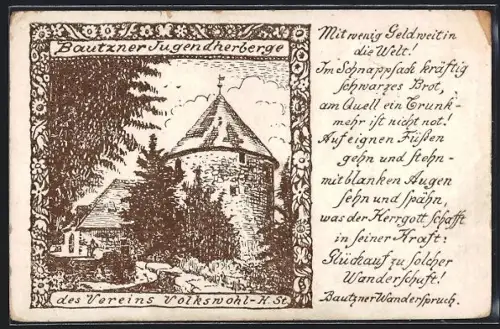 Bautzner Jugendherberge
des Vereins Volkswohl-H.St.
Mit wenig Geld weit in
die Welt!
Im Schnappsack kräftig
schwarzes Brot,
am Quell ein Trunk -
mehr ist nicht not!
Auf eignen Füßen
gehn und stehn -
mit blanken Augen
sehn und spähn,
was der Herrgott schafft
in seiner Kraft:
Glückauf zu solcher
Wanderschaft!
Bautzner Wanderspruch.